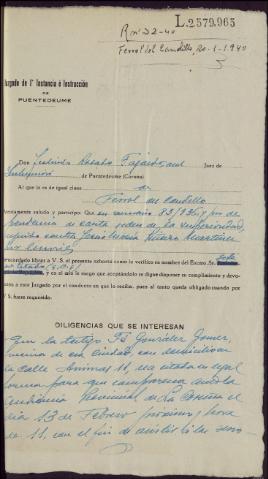 L.2579.965
R. nº 22-40
Ferrol del Caudillo, 20-1-1940
Juzgado de 1ª Instancia é Instrucción
DE
PUENTEDEUME
Don Rosado Fajardo, Juez de
Instrucción de Puentedeume (Coruña)
Al que lo es de igual clase de
Ferrol del Caudillo
Atentamente saludo y participo: Que en sumario 83/936, y
de la superioridad,
contra
lesiones
acordado librar a V. S. el presente exhorto como lo verifico en nombre del Excmo Sr.
y en el mío le ruego que aceptándolo se digne disponer su cumplimiento y devolu-
a este Juzgado por el conducto en que lo reciba, pues al tanto queda obligado cuando por
V. S. fuese requerido.
DILIGENCIAS QUE SE INTERESAN
Que la testigo Fª González Gómez,
vecina de esa Ciudad, con domicilio en
la calle Animas 11, sea citada en legal
forma para que comparezca ante la
Audiencia Provincial de La Coruña el
día 13 de Febrero próximo, hora
de 11, con el fin de asistir a las sesio-